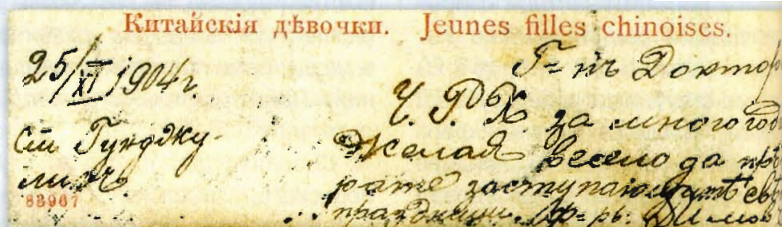 Китайскія дѣвочки. Jeunes filles chinoises.
25/XI 1904 г.
ст Гунджу-
линъ
83967
Г=нъ Доктор
Ч. Р. Х. за много год
Желая весело да
праздници.